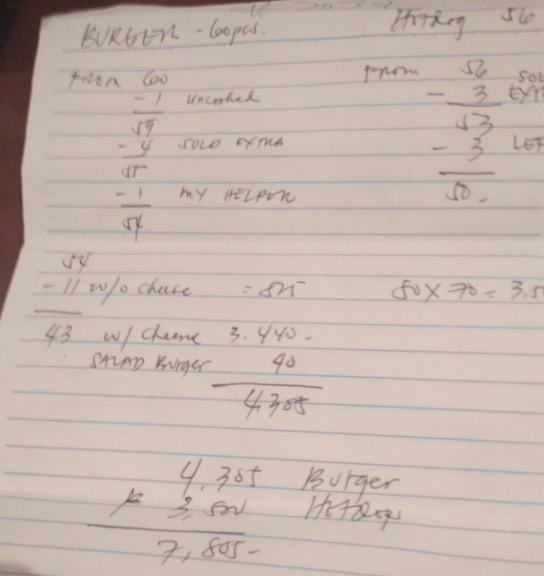 BURGER - 60pcs.
Hotdog 56
From 60
- 1 Uncooked
59
- 4 SOLD EXTRA
55
- 1 MY HELPER
54
From 56
- 3
53
- 3
50-
54
- 11 w/o cheese = 825
50 x 70 = 3.5
43 w/ cheese 3.440-
SALAD Burger 40
4,305
4,305 Burger
3,500 Hotdogs
7,805-